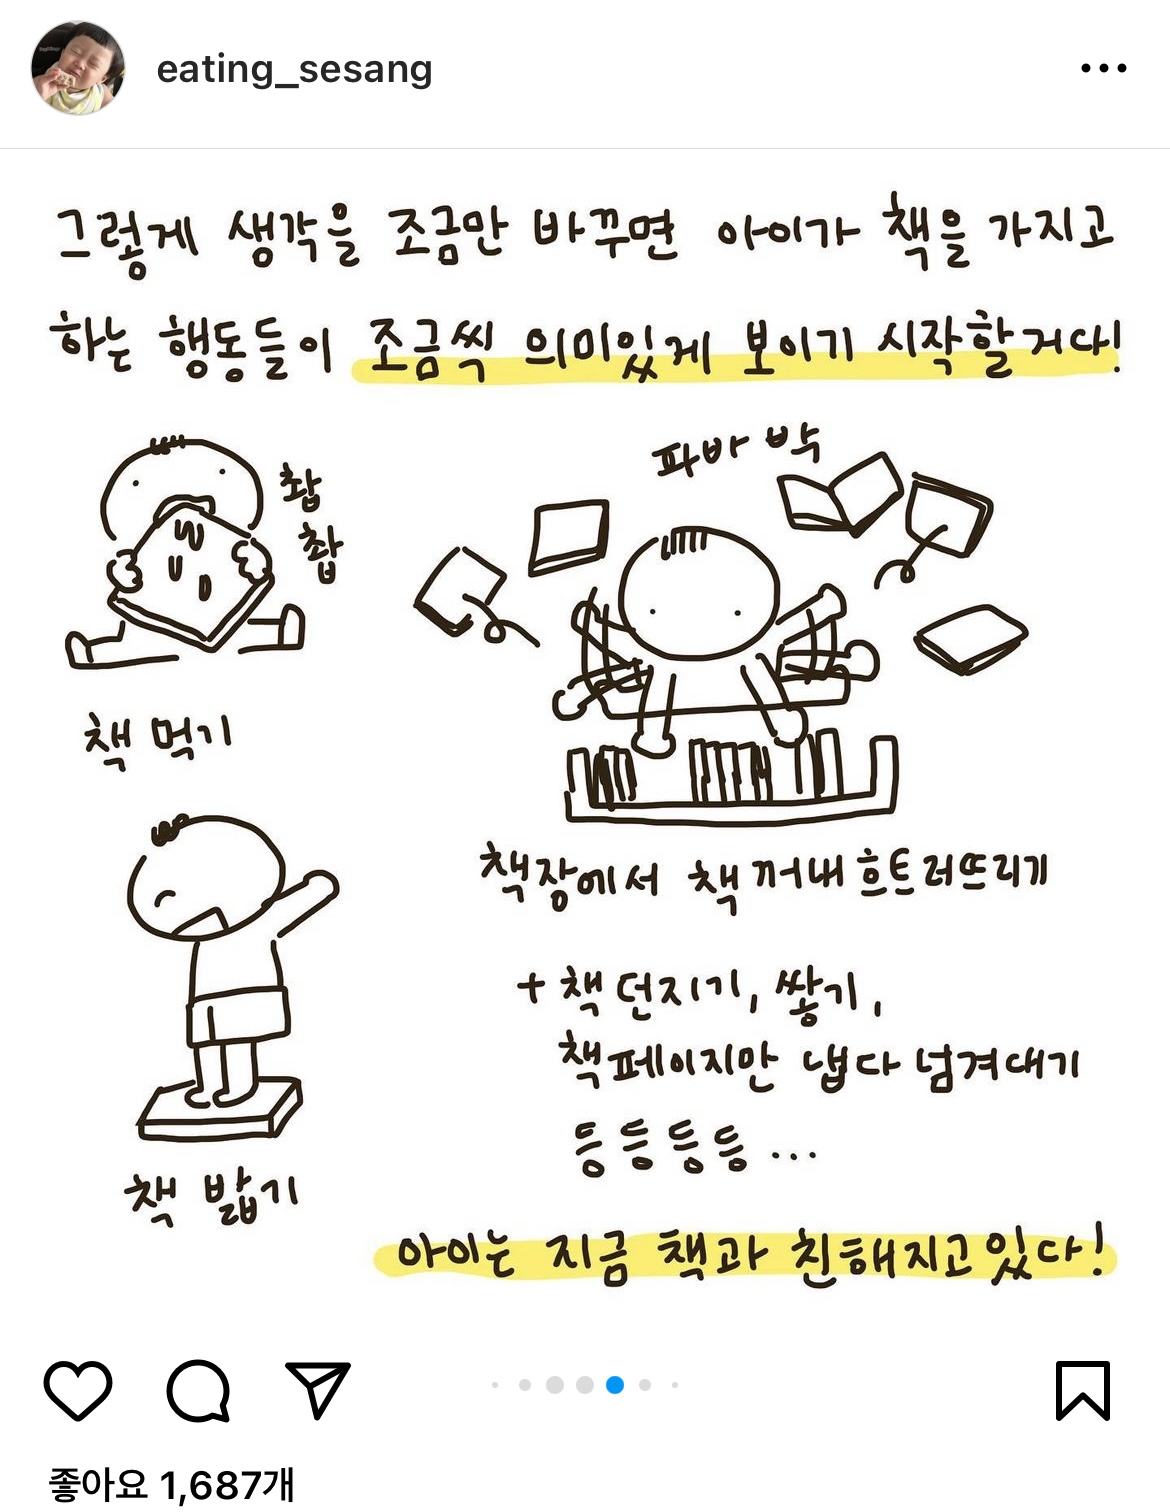 eating_sesang
그렇게 생각을 조금만 바꾸면 아이가 책을 가지고
하는 행동들이 조금씩 의미있게 보이기 시작할거다!
촵
촵
책 먹기
파바박
책장에서 책 꺼내 흐트러뜨리기
+ 책 던지기, 쌓기,
책페이지만 냅다 넘겨대기
등등등등...
책 밟기
아이는 지금 책과 친해지고있다!
좋아요 1,687개